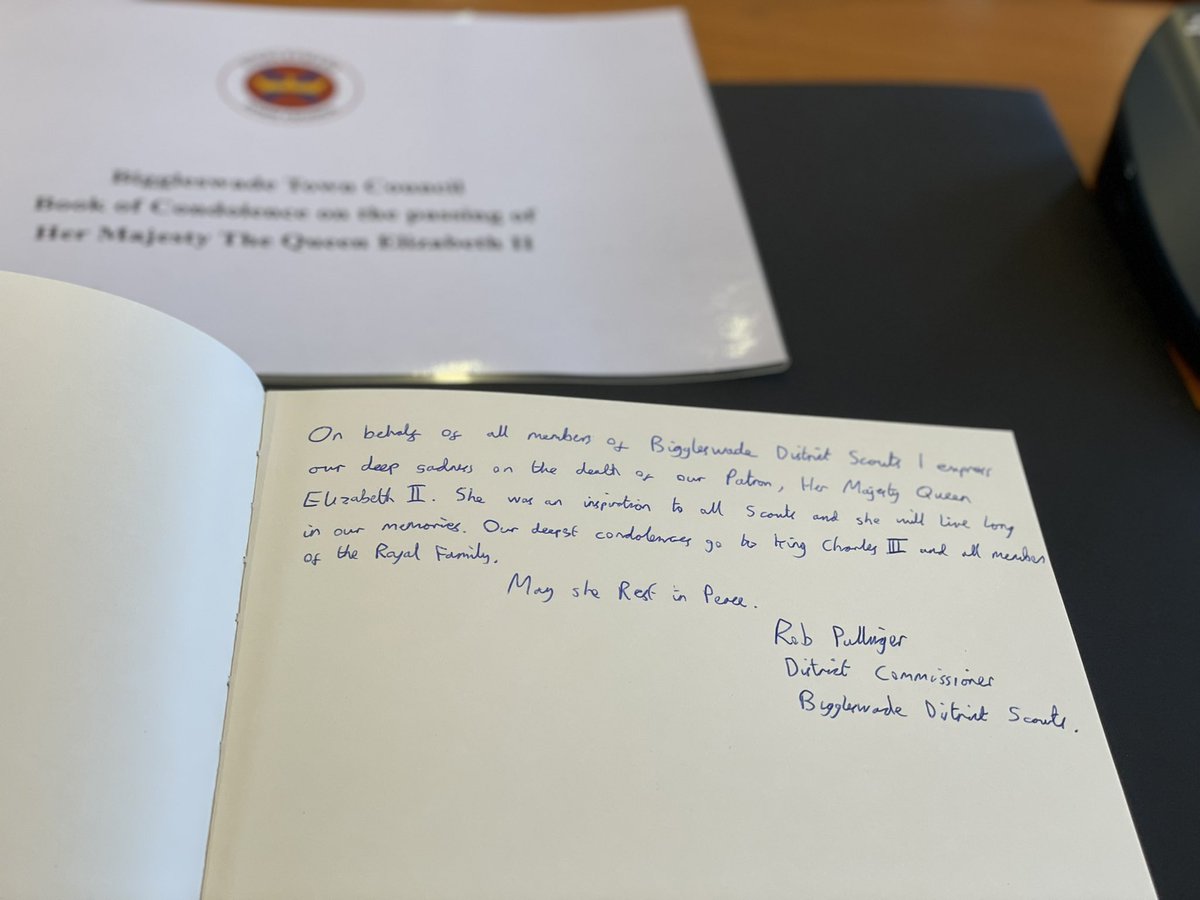 Biggleswade Town Council
Book of Condolence on the passing of
Her Majesty The Queen Elizabeth II
On behalf of all members of Biggleswade District Scouts I express
our deep sadness on the death of our Patron, Her Majesty Queen
Elizabeth II. She was an inspiration to all Scouts and she will live long
in our memories. Our deepest condolences go to King Charles III and all members
of the Royal Family.
May she Rest in Peace.
Rob Pullinger
District Commissioner
Biggleswade District Scouts.